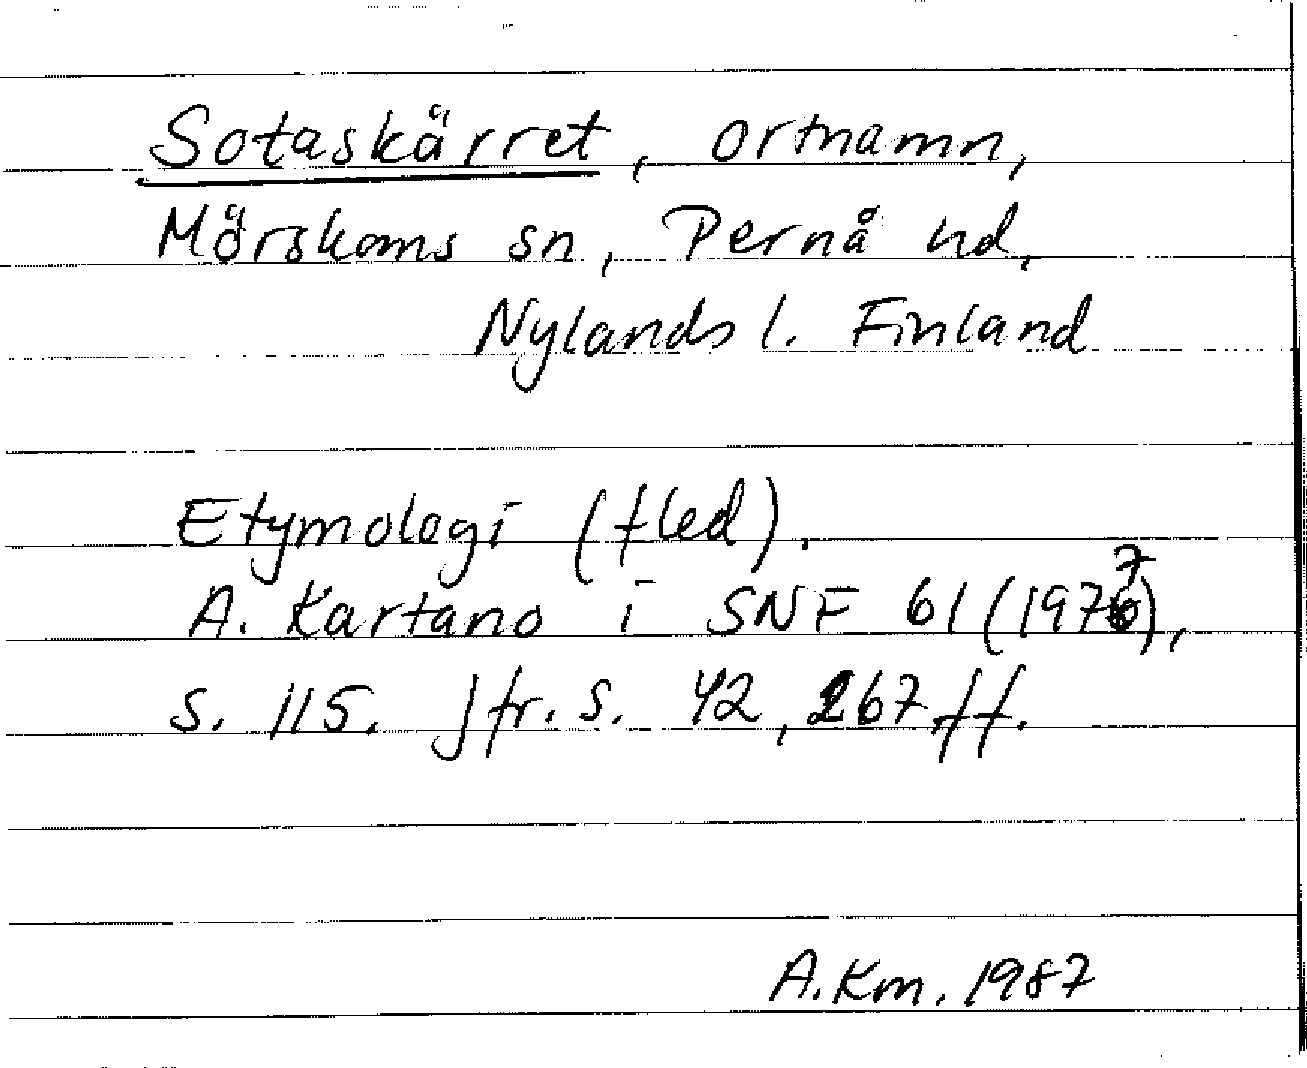 Sotaskärret, ortnamn,
Mörskoms sn, Pernå hd,
Nylands l. Finland
Etymologi (fled).
A. Kartano i SNF 61 (1977),
s. 115. Jfr. s. 42, 267 ff.
A.Km. 1987